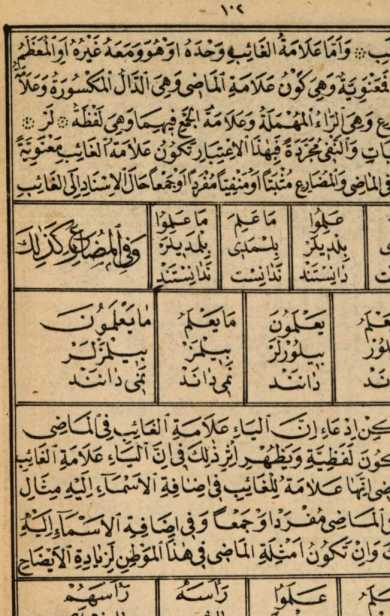 ١٠٢
وَاَمَّا عَلَامَةُ الْغَائِبِ وَحْدَهُ اَوْ هُوَ وَمَعَهُ غَيْرُهُ اَوِ الْمُعَظَّمُ
فَمَعْنَوِيَّةٌ وَهِىَ كَوْنُ عَلَامَةِ الْمَاضِى وَهِىَ الدَّالُ الْمَكْسُورَةُ وَعَلَامَةُ
وَهِىَ الرَّاءُ الْمُهْمَلَةُ وَعَلَامَةُ الْجَمْعِ فِيهِمَا وَهِىَ لَفْظَةُ لَرْ
وَالنَّفْىِ مُجَرَّدَةً فَبِهٰذَا الْاِعْتِبَارِ تَكُونُ عَلَامَةُ الْغَائِبِ مَعْنَوِيَّةً
فِى الْمَاضِى وَالْمُضَارِعِ مُثْبَتًا اَوْ مَنْفِيًّا مُفْرَدًا اَوْ جَمْعًا حَالَ الْاِسْنَادِ اِلَى الْغَائِبِ
عَلِمُوا مَا عَلِمَ مَا عَلِمُوا وَفِى الْمُضَارِعِ كَذٰلِكَ
بِلْدِيلَرْ بِلْمَدِى بِلْمَدِيلَرْ
دَانِسْتَنْدْ نَدَانِسْتْ نَدَانِسْتَنْدْ
يَعْلَمُ يَعْلَمُونَ مَا يَعْلَمُ مَا يَعْلَمُونَ
بِيلُورْ بِيلُورْلَرْ بِيلْمَزْ بِيلْمَزْلَرْ
دَانَنْدْ نَمِى دَانَدْ نَمِى دَانَنْدْ
اِدِّعَاءُ اِنَّ الْيَاءَ عَلَامَةُ الْغَائِبِ فِى الْمَاضِى
لَفْظِيَّةً وَيَظْهَرُ اَثَرُ ذٰلِكَ فِى اَنَّ الْيَاءَ عَلَامَةُ الْغَائِبِ
اَنَّهَا عَلَامَةٌ لِلْغَائِبِ فِى اِضَافَةِ الْاَسْمَاءِ اِلَيْهِ مِثَالُ
الْمَاضِى مُفْرَدًا وَجَمْعًا وَفِى اِضَافَةِ الْاَسْمَاءِ اِلَيْهِ
وَاِنْ تَكُونُ اَمْثِلَةُ الْمَاضِى فِى هٰذَا الْمَوْطِنِ لِزِيَادَةِ الْاِيضَاحِ
عَلِمَ عَلِمُوا رَأْسُهُ رَأْسُهُمْ